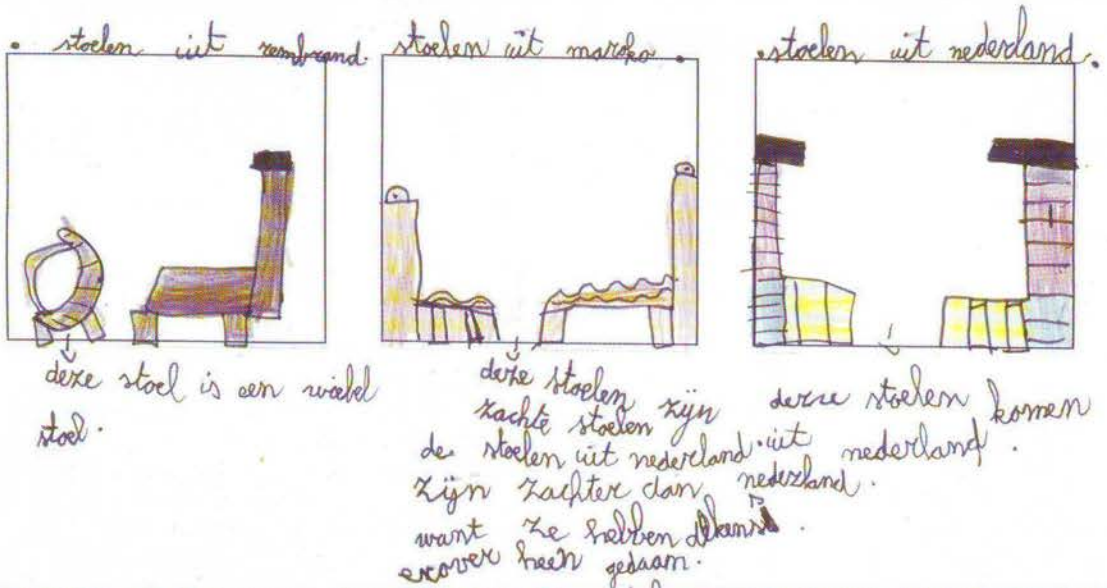 . stoelen uit rembrand.
deze stoel is een wiebel
stoel.
stoelen uit maroko.
deze stoelen
zachte stoelen zijn
de stoelen uit nederland.
zijn zachter dan nederland.
want ze hebben dekens
erover heen gedaan.
. stoelen uit nederland.
deze stoelen komen
uit nederland.